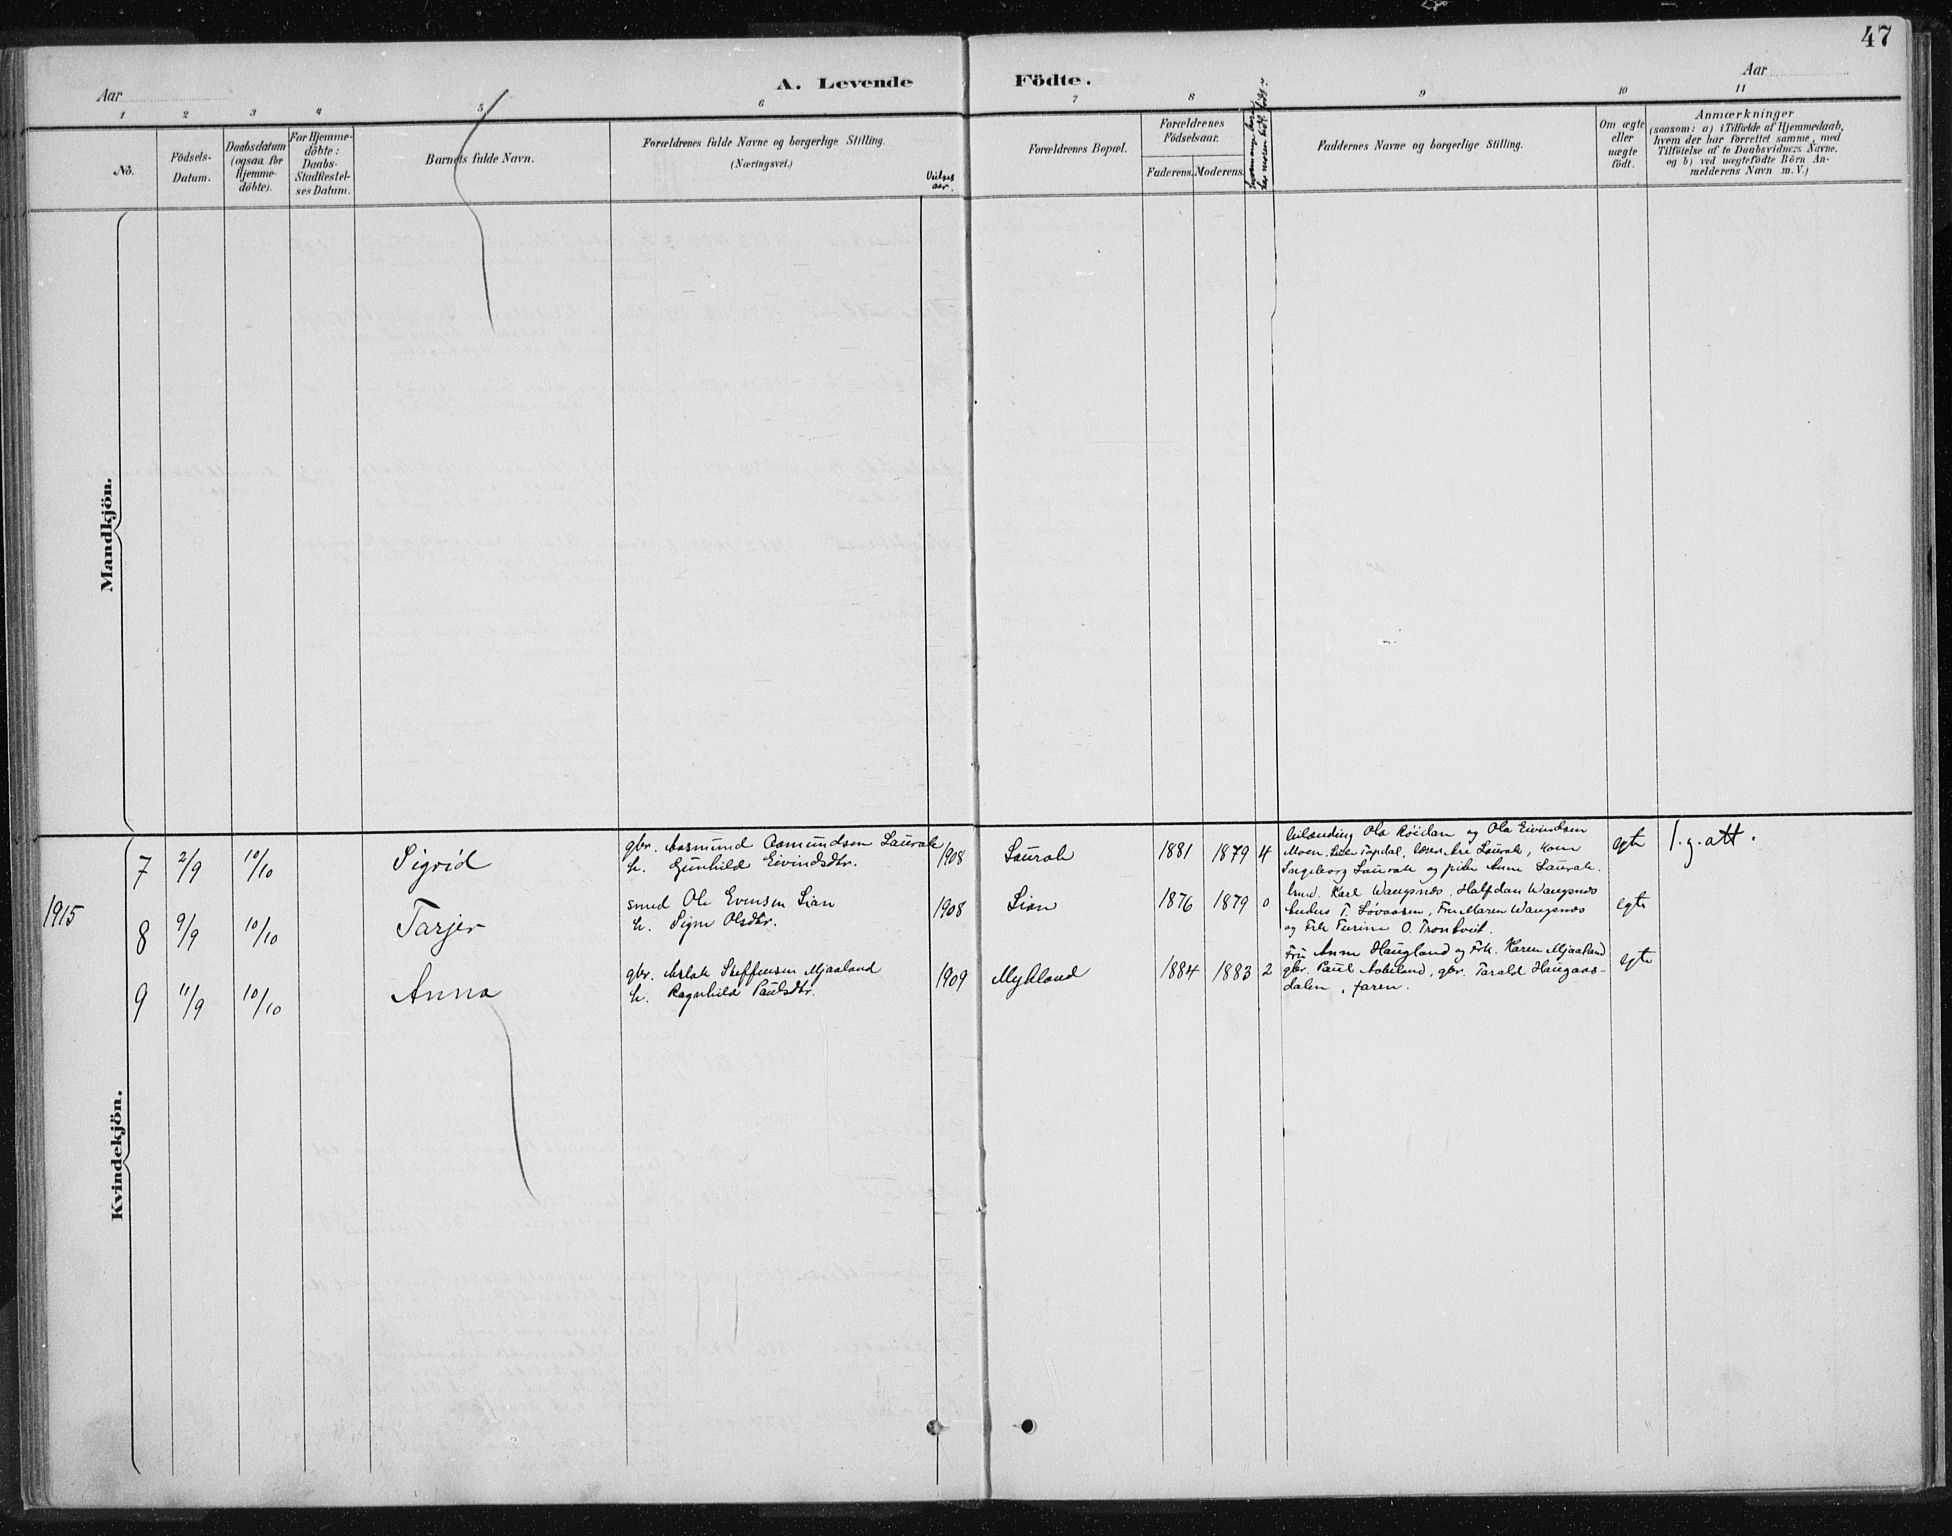 47
A. Levende Födte.
Aar
Aar
1 2 3 4 5 6 7 8 9 10 11
No.
Födsels-
Datum.
Daabsdatum
(ogsaa for
Hjemme-
döbte).
For Hjemme-
döbte:
Daabs-
Stadfæstel-
ses Datum.
Barnets fulde Navn.
Forældrenes fulde Navne og borgerlige Stilling.
(Næringsvei.)
Vielses
aar.
Forældrenes Bopæl.
Forældrenes
Födselsaar.
Faderens. Moderens.
Faddernes Navne og borgerlige Stilling.
Om ægte
eller
uægte
født.
Anmærkninger
(saasom: a) i Tilfælde af Hjemmedaab,
hvem der har forrettet samme, med
Tilföielse af to Daabsvidners Navne,
og b) ved uægtefödte Börn An-
melderens Navn m. V.)
Mandkjön.
Kvindekjön.
1915
7 2/9 10/10 Sigrid
gbr. Aasmund Aamundsen Laurak
h. Gunhild Eivindsdtr.
1908 Laurak 1881 1879 4
Ola Röidan og Ola Eivindsen
Moen, Topdal, Are Laurak, kone
Ingeborg Laurak og pike Anne Laurak.
egte
I. g. att.
8 9/9 10/10 Tarjer
smed Ole Evensen Lian
h. Signe Olsdtr.
1908 Lian 1876 1879 0
Karl Wangsnes, Halfdan Wangsnes
Anders T. Løvaasen, Fru Maren Wangsnes
og Frk Turine O. Trontveit.
egte
9 11/9 10/10 Anna
gbr. Aslak Steffensen Mjaaland
h. Ragnhild Paulsdtr.
1909 Mykland 1884 1883 2
Fru Anne Haugland og Frk. Karen Mjaaland
gbr. Paul Aabeland, gbr. Tarald Haugaas-
dalen, faren.
egte